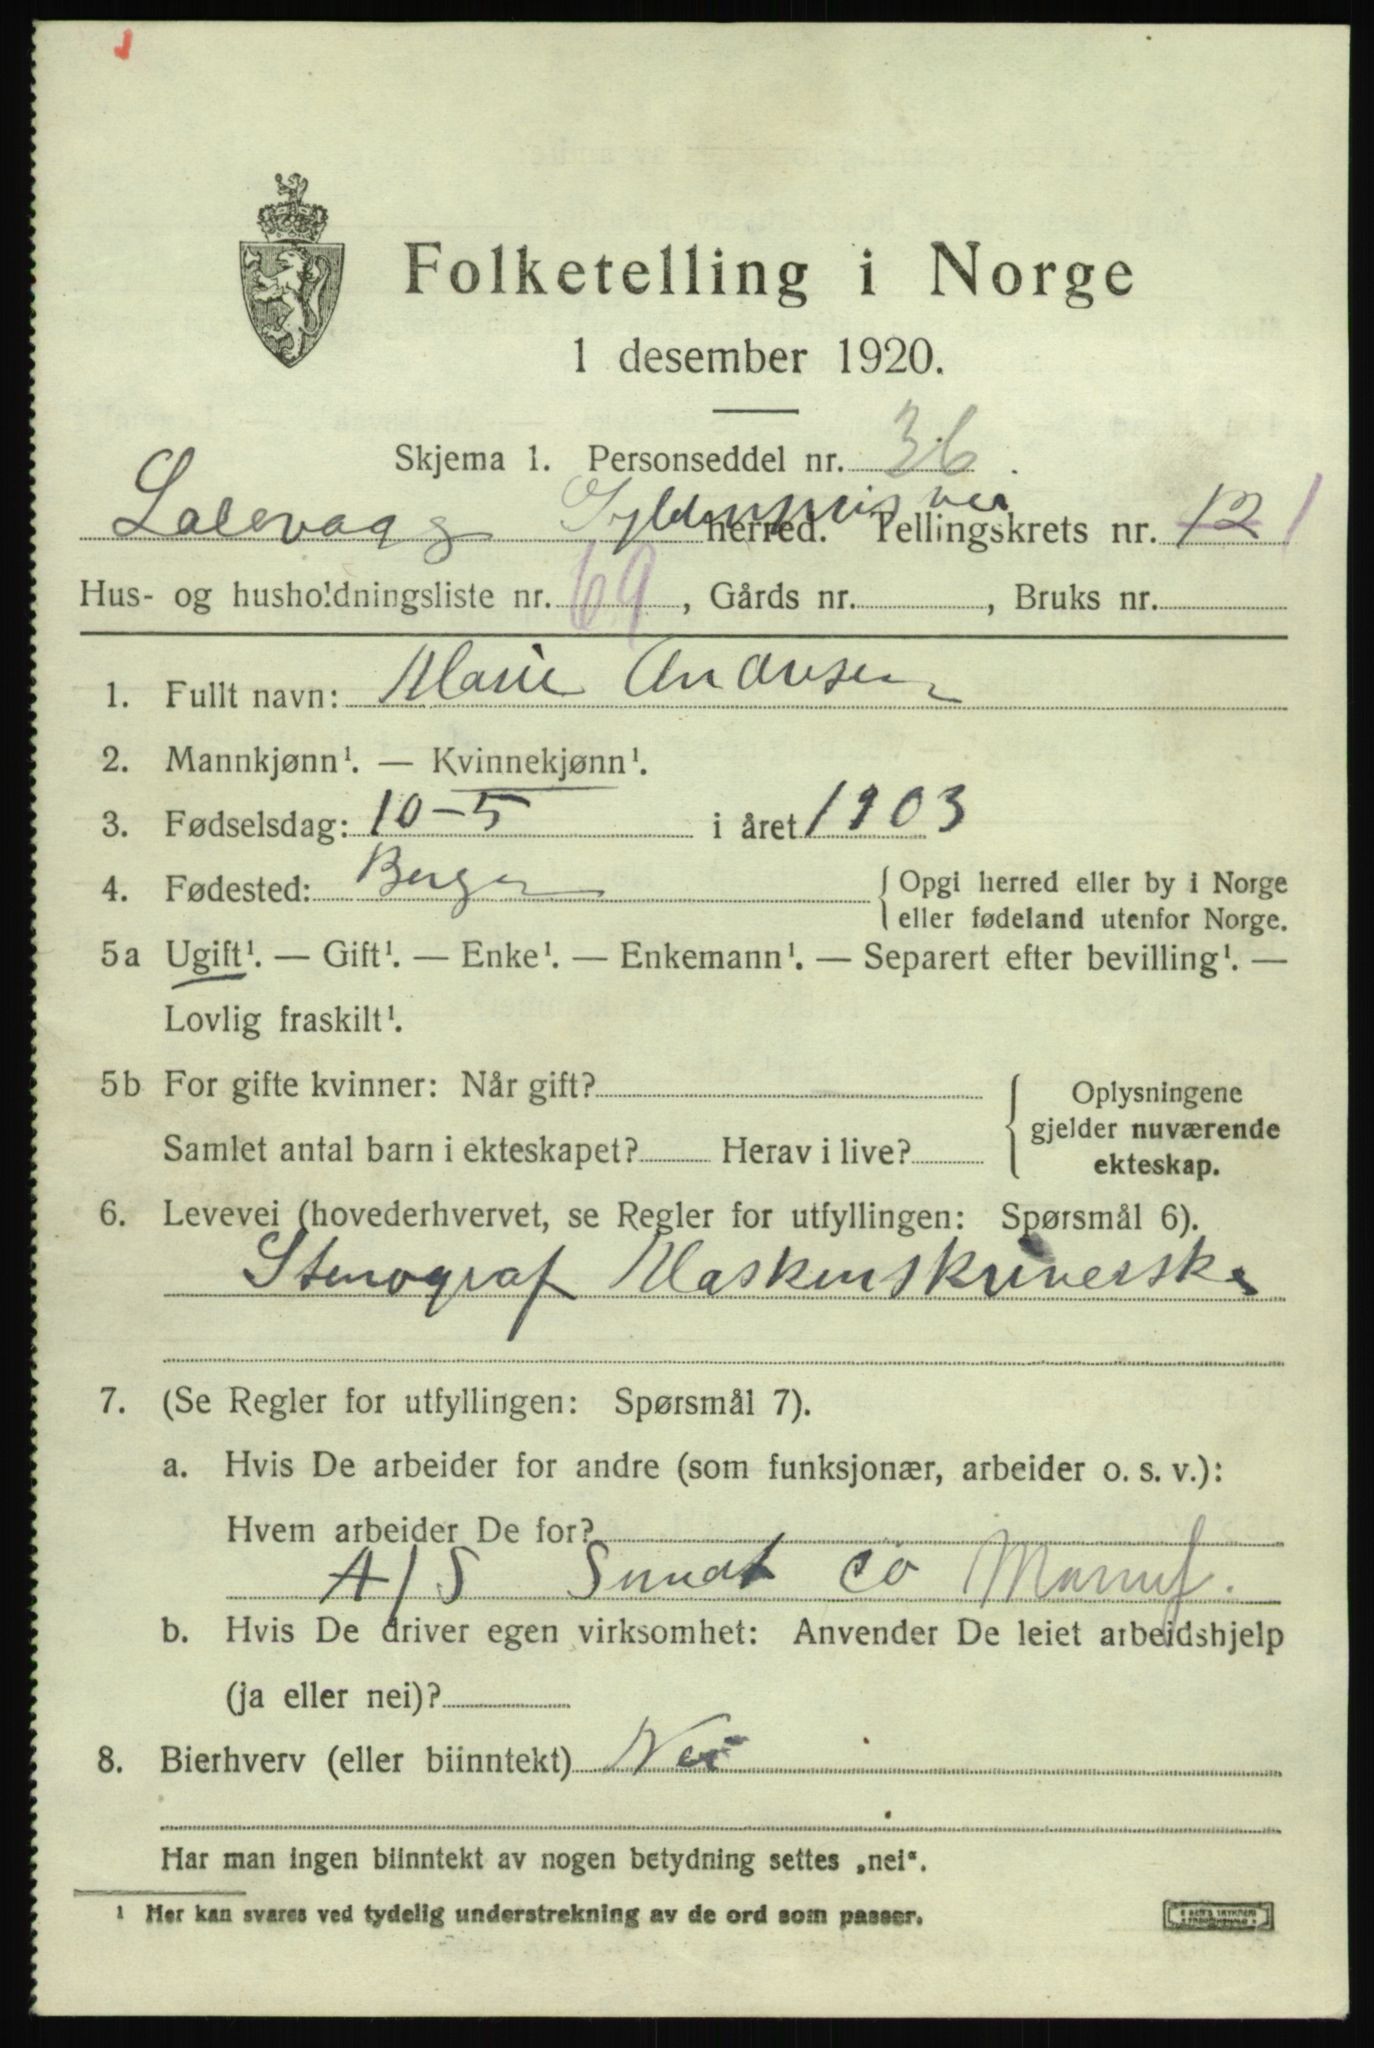 Folketelling i Norge
1 desember 1920.
Skjema 1. Personseddel nr. 36.
Laksevaag herred. Tellingskrets nr. 12 1
Hus- og husholdningsliste nr. 69, Gårds nr. , Bruks nr.
1. Fullt navn: Marie Andresen
2. Mannkjønn¹. — Kvinnekjønn¹.
3. Fødselsdag: 10-5 i året 1903
4. Fødested: Bergen { Opgi herred eller by i Norge
eller fødeland utenfor Norge.
5a Ugift¹. — Gift¹. — Enke¹. — Enkemann¹. — Separert efter bevilling¹. —
Lovlig fraskilt¹.
5b For gifte kvinner: Når gift? { Oplysningene
gjelder nuværende
ekteskap.
Samlet antal barn i ekteskapet? Herav i live?
6. Levevei (hovederhvervet, se Regler for utfyllingen: Spørsmål 6).
Stenograf Maskinskriverske
7. (Se Regler for utfyllingen: Spørsmål 7).
a. Hvis De arbeider for andre (som funksjonær, arbeider o. s. v.):
Hvem arbeider De for?
A/S Sundt co Manuf.
b. Hvis De driver egen virksomhet: Anvender De leiet arbeidshjelp
(ja eller nei)?
8. Bierhverv (eller biinntekt) Nei
Har man ingen biinntekt av nogen betydning settes „nei“.
¹ Her kan svares ved tydelig understrekning av de ord som passer.